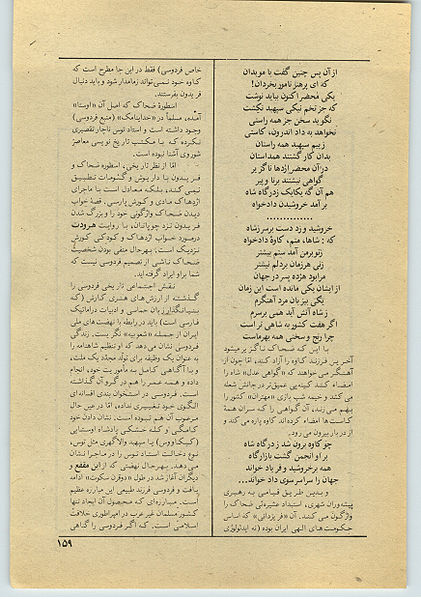 از آن پس چنین گفت با موبدان
که ای پرهنر نامور بخردان!
یکی محضر اکنون بباید نوشت
که جز تخم نیکی سپهبد نکشت
نگوید سخن جز همه راستی
نخواهد به داد اندرون، کاستی
زبیم سپهبد همه راستان
بدان کار گشتند همداستان
در آن محضر اژدها ناگزیر
گواهی نبشتند برنا و پیر
هم آن گه یکایک زدرگاه شاه
بر آمد خروشیدن دادخواه
..............
خروشید و زد دست برسر زشاه
که: شاها، منم، کاوهٔ دادخواه
زتو برمن آمد ستم بیشتر
زنی هرزمان بردلم نیشتر
مرا بود هژده پسر در جهان
از ایشان یکی مانده است این زمان
یکی بی‌زیان مرد آهنگرم
زشاه آتش آید همی برسرم
اگر هفت کشور به شاهی تر است
چرا رنج و سختی همه بهرماست
با این که ضحاک ناگزیر میشود
آخرین فرزند کاوه را آزاد کند، امّا چون از
آهنگر می خواهند که «گواهی عدل» شاه را
امضاء کند کینه‌یی عمیق‌تر در جانش شعله
می کشد و خیمه شب بازی «مهتران» کشور را
بهم می‌زند، آن گواهی را که سران همهٔ
کاست‌ها امضاء کرده‌اند کاوه پاره می کند و
از دربار بیرون می رود.
چو کاوه برون شد زدرگاه شاه
بر او انجمن گشت بازارگاه
همه برخروشید و فریاد خواند
جهان را سراسر سوی داد خواند...
و بدین طریق قیامی به رهبری
پیشه‌وران شهری، استبداد عشیره‌ئی ضحاک را
واژگون می کند. آن «فر یزدانی» که اساس
حکومت‌های الهی ایران بوده (نه ایدئولوژی
خاص فردوسی) فقط در این جا مطرح است که
کاوه خود نمی‌تواند زمامدار شود و باید دنبال
فریدون بفرستند.
اسطورهٔ ضحاک که اصل آن «اوستا»
آمده، مسلماً در «خداینامک» (منبع فردوسی)
وجود داشته است و استاد توس ناچار تقصیری
نکرده که با مکتب تاریخ نویسی معاصر
شوروی آشنا نبوده است.
امّا از نظر تاریخی، اسطوره ضحاک و
فریدون با داریوش و گئومات تطبیق
نمی کند، بلکه معادل است با ماجرای
اژدهاک مادی و کورش پارسی. قصهٔ خواب
دیدن ضحاک واژگونی خود را و بزرگ شدن
فریدون نزد چوپانان، با روایت هرودت
درمورد خواب اژدهاک و کودکی کورش
نزدیک است، بهرحال منفی بودن شخصیّت
ضحاک ناشی از تصمیم فردوسی نیست که
شما بر او ایراد گرفته اید.
نقش اجتماعی تاریخی فردوسی را
گذشته از ارزش های هنری کارش (که
بنیانگذار زبان حماسی و ادبیات دراماتیک
فارسی است) باید در رابطه با نهضت‌های ملی
ایران از جمله «شعوبیه» نگر یست. زندگی
فردوسی نشان می دهد که او تنظیم شاهنامه را
به عنوان یک وظیفه برای تولد مجدّد یک ملت،
و با آگاهی کامل به مأموریت خود، انجام
داده و همه عمر را هم در گرو آن گذاشته
است. فردوسی در استخوان بندی افسانه ای
الگوی خود تغییری نداده، امّا در عین حال
مرعوب آن هم نبوده است. نشان دادن خود
کامگی و کله خشکی پادشاه اوستایی
(کیکاووس) یا سپهبد والاگهری مثل توس،
نوع دخالت استاد توس را در ماجرا نشان
می دهد. بهرحال نهضتی که از ابن مقفع و
دیگران آغاز شد در طول «دوقرن سکوت» ادامه
یافت و فردوسی فرزند طبیعی این مبارزه عظیم
است. مبارزه‌ای که محصول آن ایجاد تنها
کشور مسلمان غیر عرب در امپراطوری خلافت
اسلامی است. که اگر فردوسی را گناهی
۱۵۹